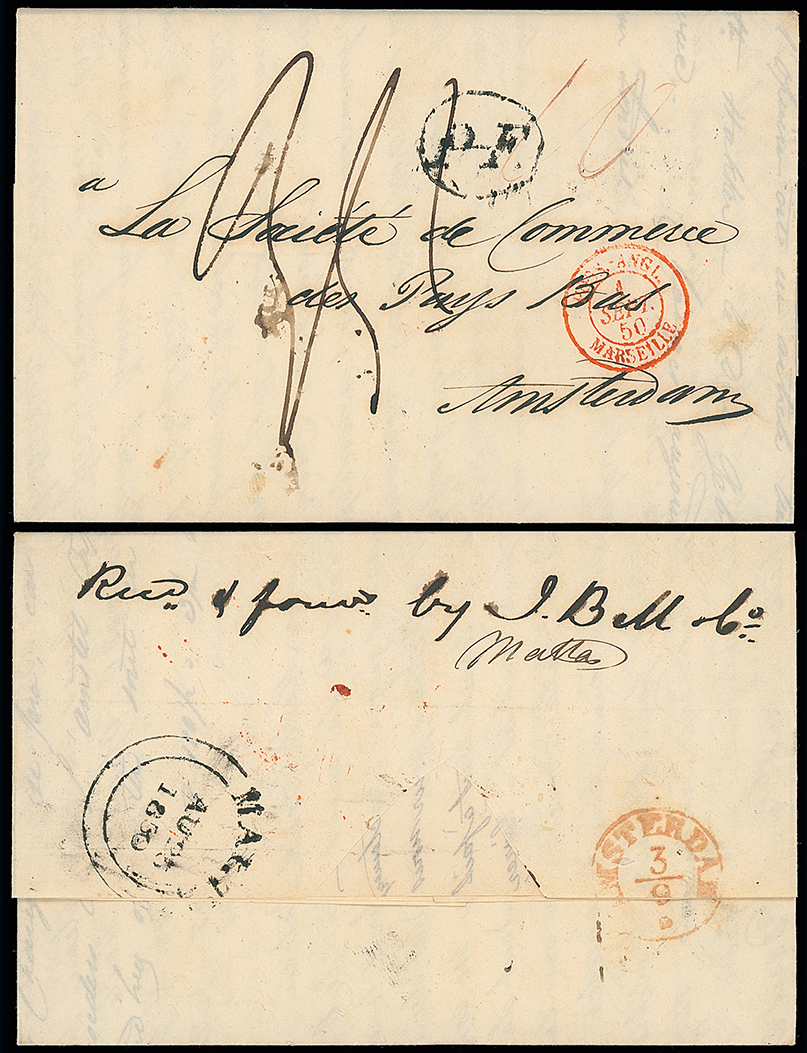 P.F.
10
a
La Société de Commerce
des Pays Bas
Amsterdam
ANGL.
1
SEPT.
50
MARSEILLE
Recd. & forwd. by J. B M & Co.
Malta
MALTA
AU 25
1850
AMSTERDAM
3
9